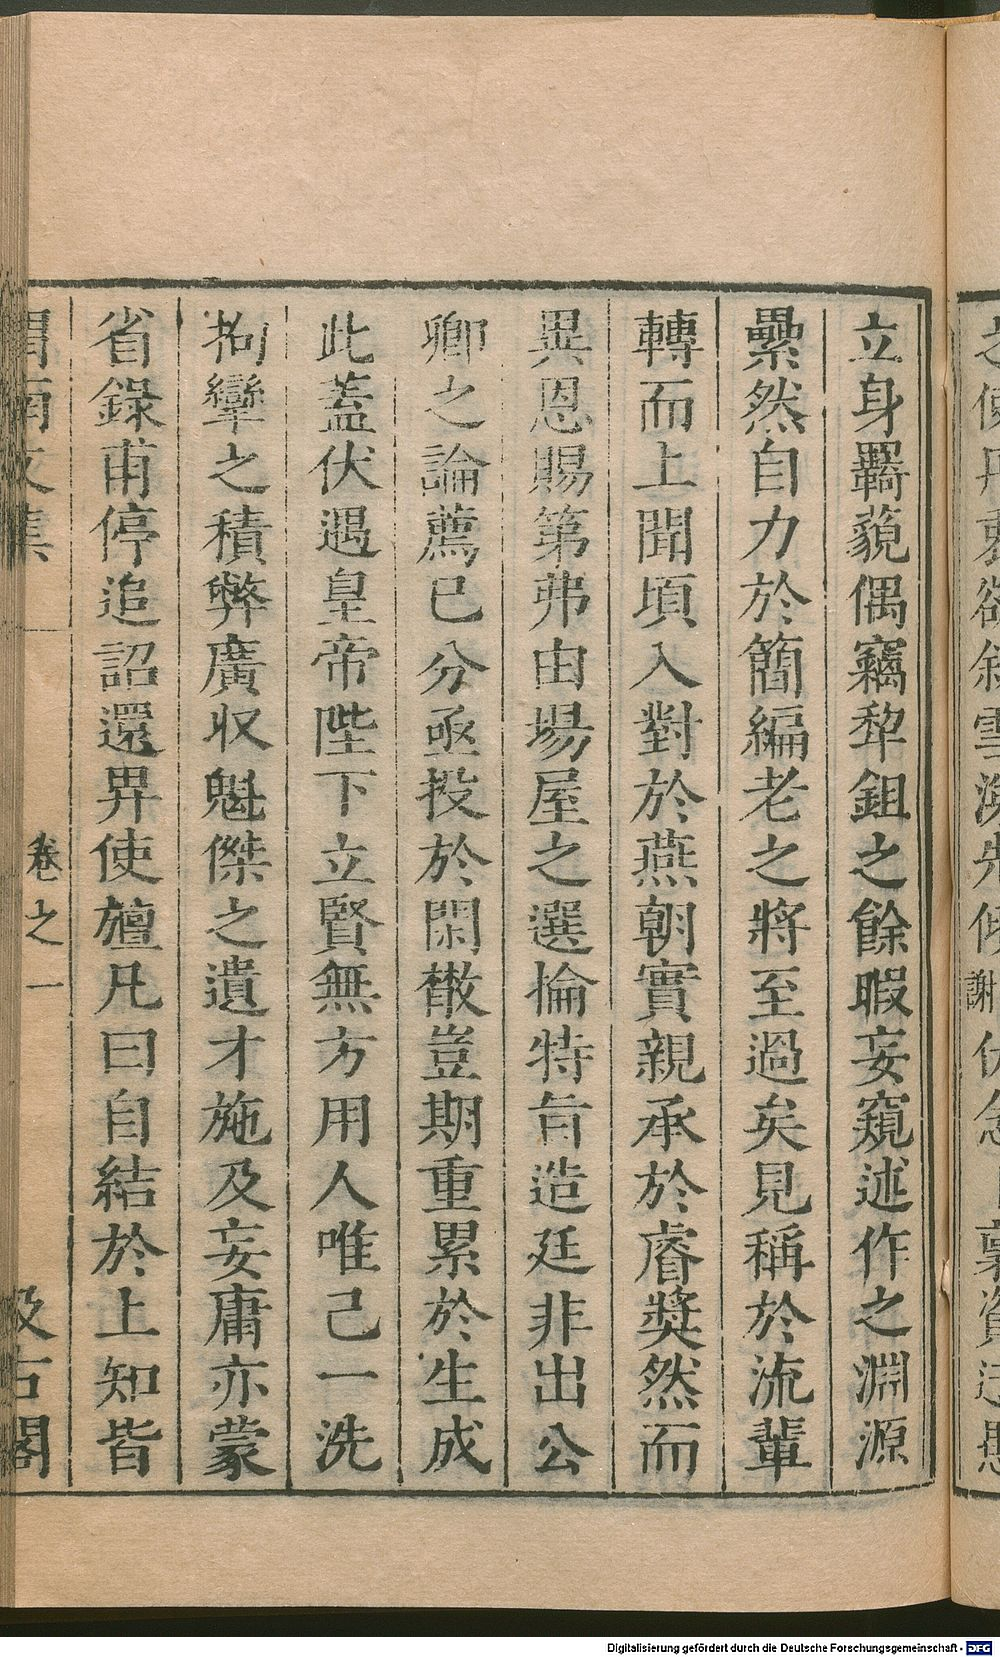 立身羇藐偶竊犂鉏之餘暇妄窺述作之淵源
纍然自力於簡編老之將至過矣見稱於流輩
轉而上聞頃入對於燕朝實親承於睿奬然而
異恩賜第弗由場屋之選掄特旨造廷非出公
卿之論薦已分亟投於閑散豈期重累於生成
此蓋伏遇皇帝陛下立賢無方用人唯己一洗
拘攣之積弊廣収魁傑之遺才施及妄庸亦蒙
省錄甫停追詔還畀使旜凡曰自結於上知皆
渭南文集 卷之一 汲古閣
Digitalisierung gefördert durch die Deutsche Forschungsgemeinschaft - DFG